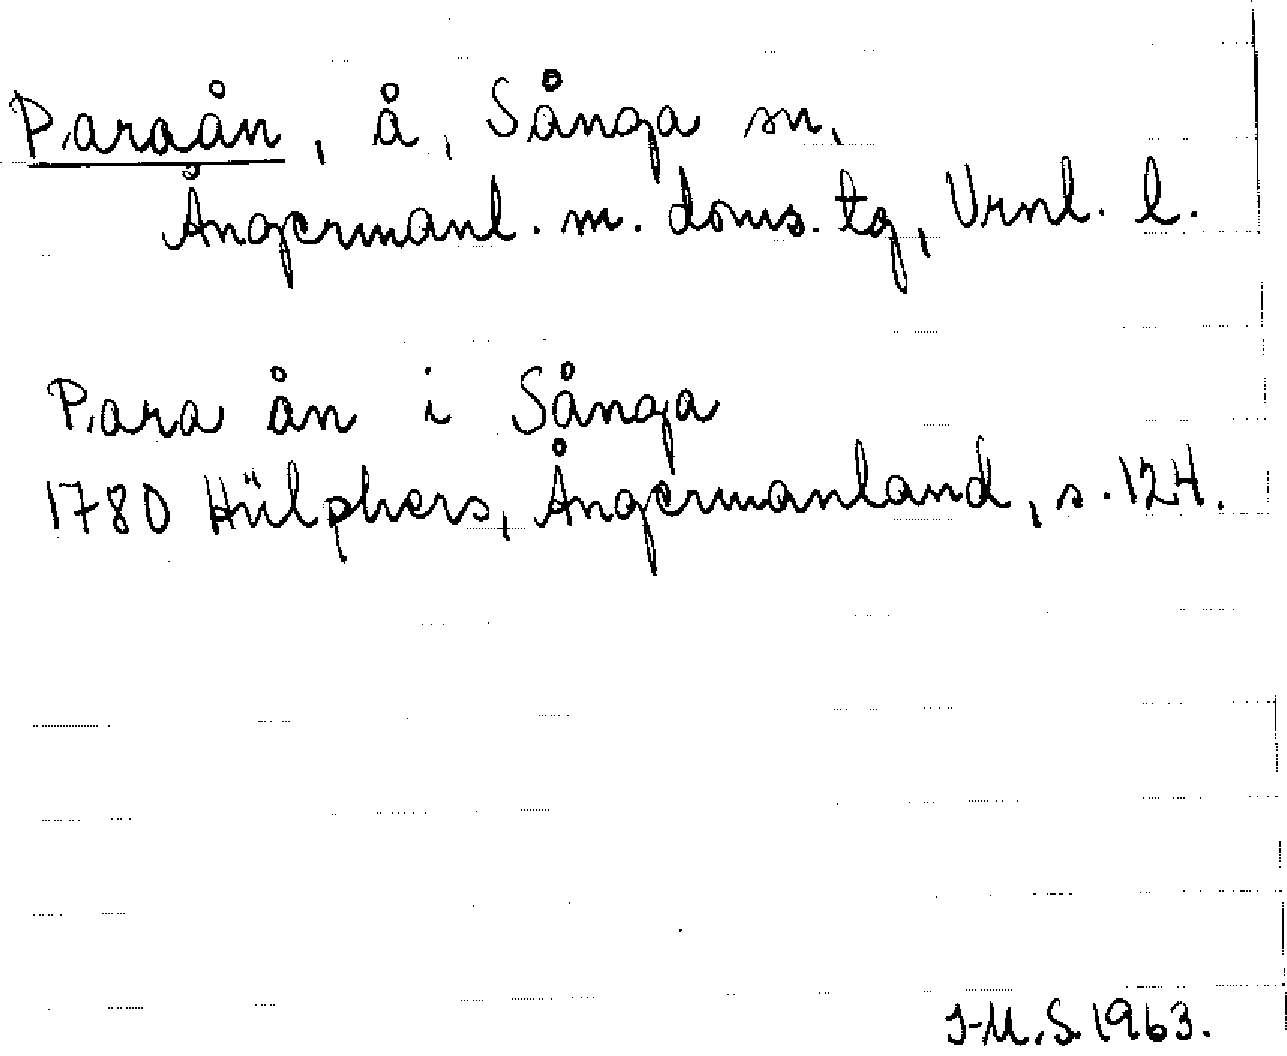 Paraån, å, Sånga sn,
Ångermanl. m. doms. tg, Vrnl. l.
Para ån i Sånga
1780 Hülphers, Ångermanland, s. 124.
J-M.S. 1963.